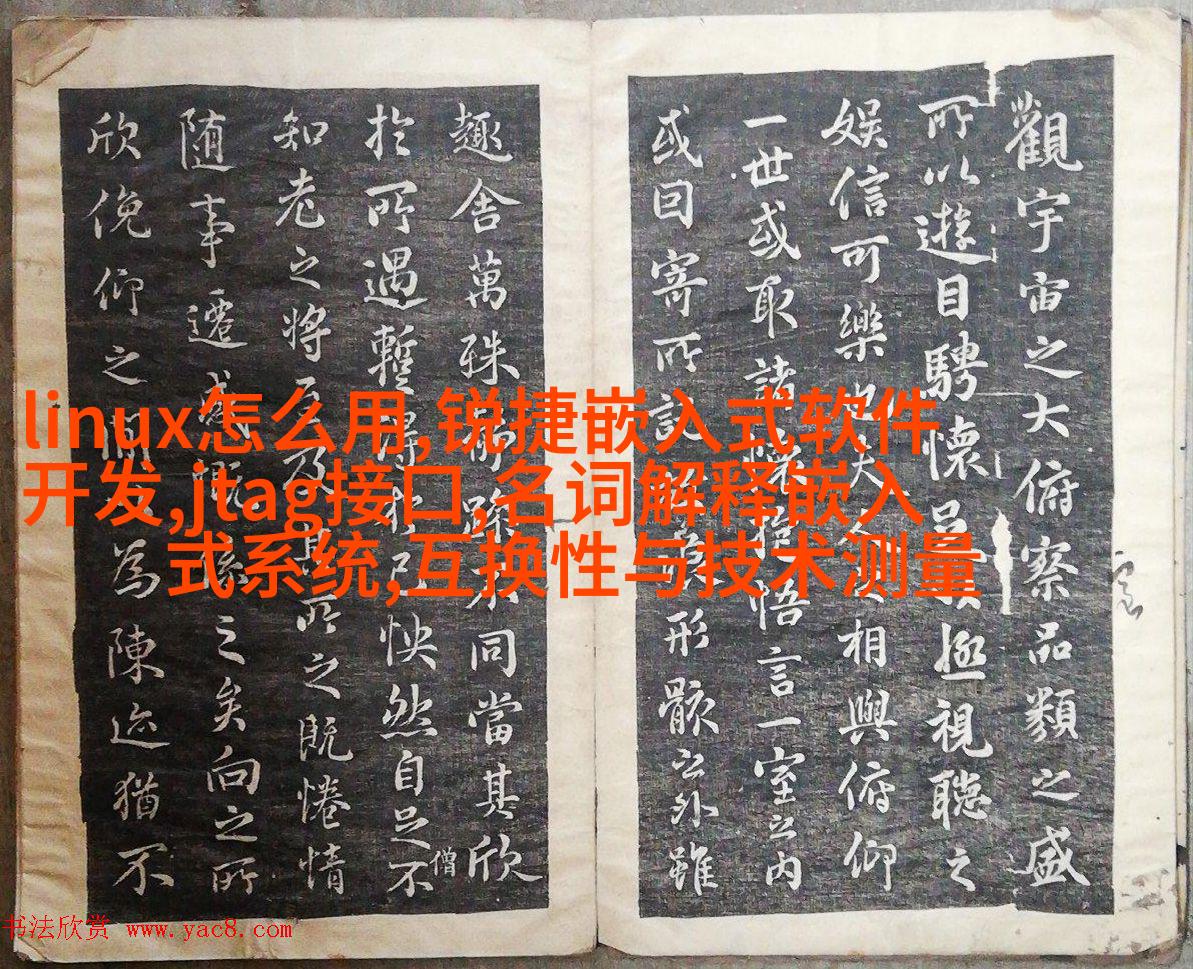 觀宇宙之大俯察品類之盛
所以遊目騁懷足極視聽之
娛信可樂也夫相與俯仰
一世或取諸懷抱悟言一室之內
或因寄所託形骸之外雖
趣舍萬殊靜躁不同當其欣
於所遇暫得於己怏然自足不
僧
知老之將至及其所之既惓情
随事遷感慨係之矣向之所
欣俛仰之為陳迹猶不
linux怎么用,锐捷嵌入式软件
开发,jtag接口,名词解释嵌入
式系统,互换性与技术测量
书法欣赏 www.yac8.com